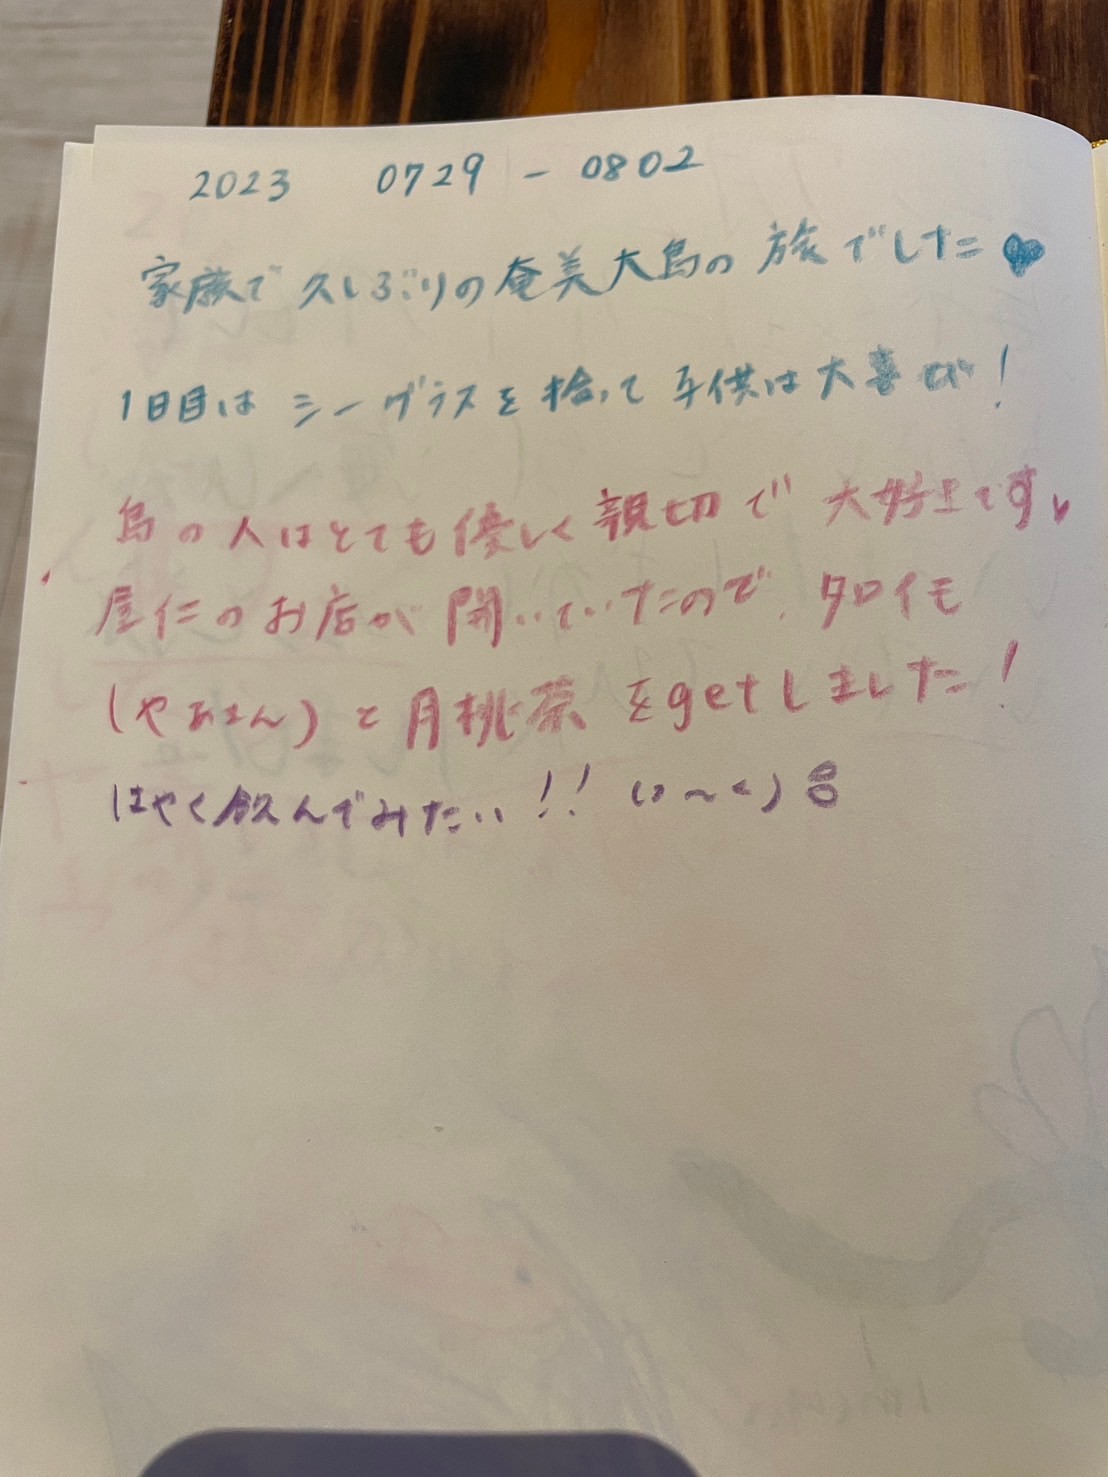 2023 0729 - 0802
家族で久しぶりの奄美大島の旅でした♥
1日目はシーグラスを拾って子供は大喜び!
島の人はとても優しく親切で大好きです♥
屋仁のお店が開いていたので、タロイモ
と月桃茶をgetしました!
はやく飲んでみたい!!